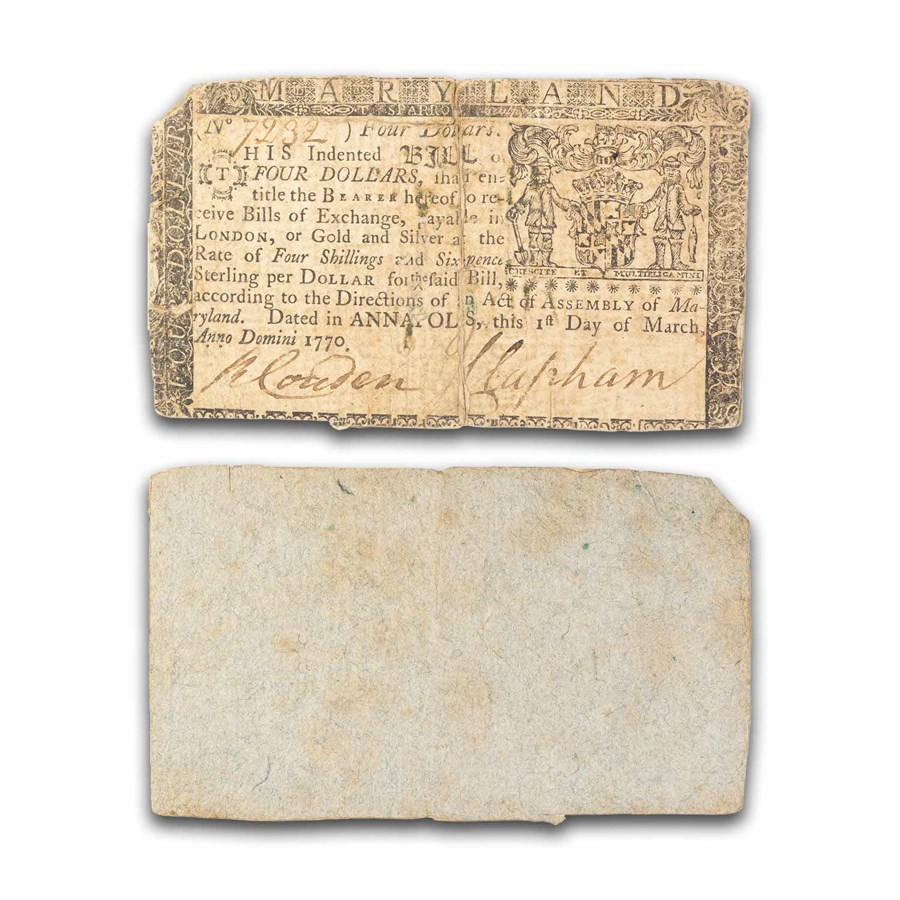 MARYLAND
T. SPARRO
FOUR DOLLARS
No 7232 ) Four Dollars.
THIS Indented BILL of
FOUR DOLLARS, shall en-
title the BEARER hereof to re-
ceive Bills of Exchange, payable in
LONDON, or Gold and Silver at the
Rate of Four Shillings and Sixpence
Sterling per DOLLAR for the said Bill,
according to the Directions of an Act of ASSEMBLY of Ma-
ryland. Dated in ANNAPOLIS, this 1st Day of March,
Anno Domini 1770.
CRESCITE ET MULTIPLICAMINI
R Couden J Clapham